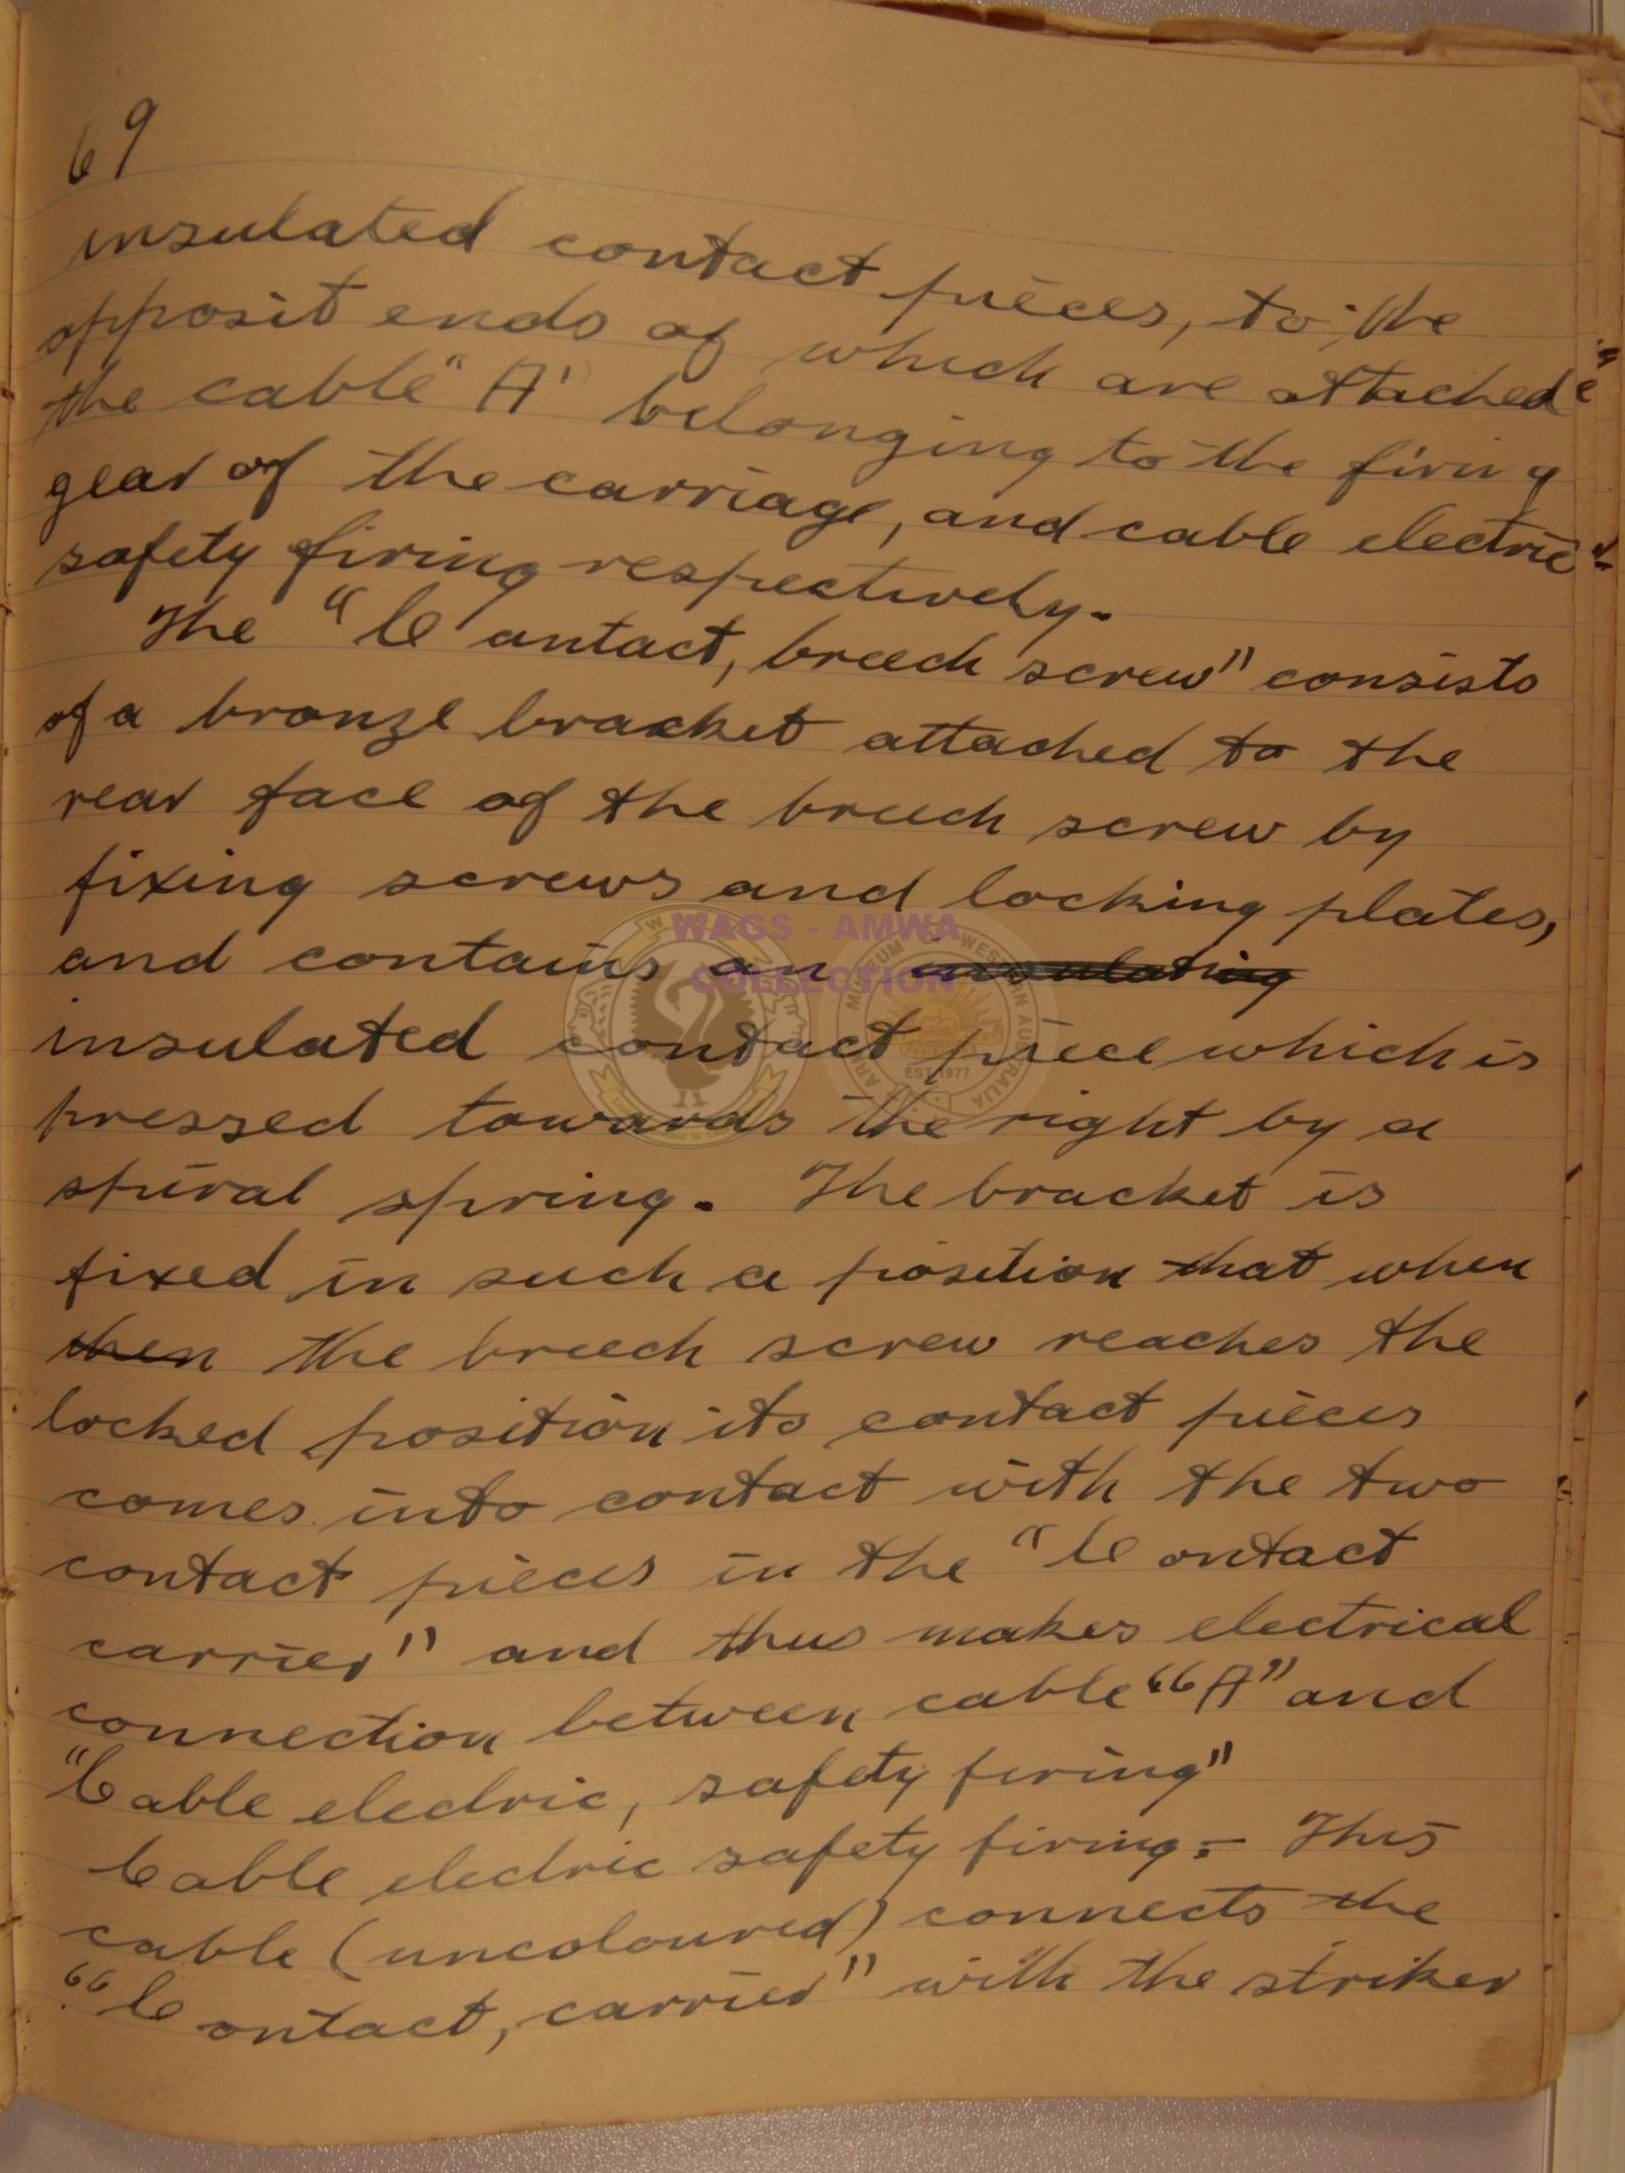 69
insulated contact pieces, to the
opposit ends of which are attached
the cable "A" belonging to the firing
gear of the carriage, and cable electric
safety firing respectively.
The "Contact, breech screw" consists
of a bronze bracket attached to the
rear face of the breech screw by
fixing screws and locking plates,
and contains an insulating
insulated contact piece which is
pressed towards the right by a
spiral spring. The bracket is
fixed in such a position that when
then the breech screw reaches the
locked position its contact pieces
comes into contact with the two
contact pieces in the "Contact
carrier" and thus makes electrical
connection between cable "A" and
"Cable electric, safety firing"
Cable electric safety firing:- This
cable (uncoloured) connects the
"Contact, carrier" with the striker
WAGS - AMWA
COLLECTION
MUSEUM
WESTERN AUSTRALIA
EST 1977